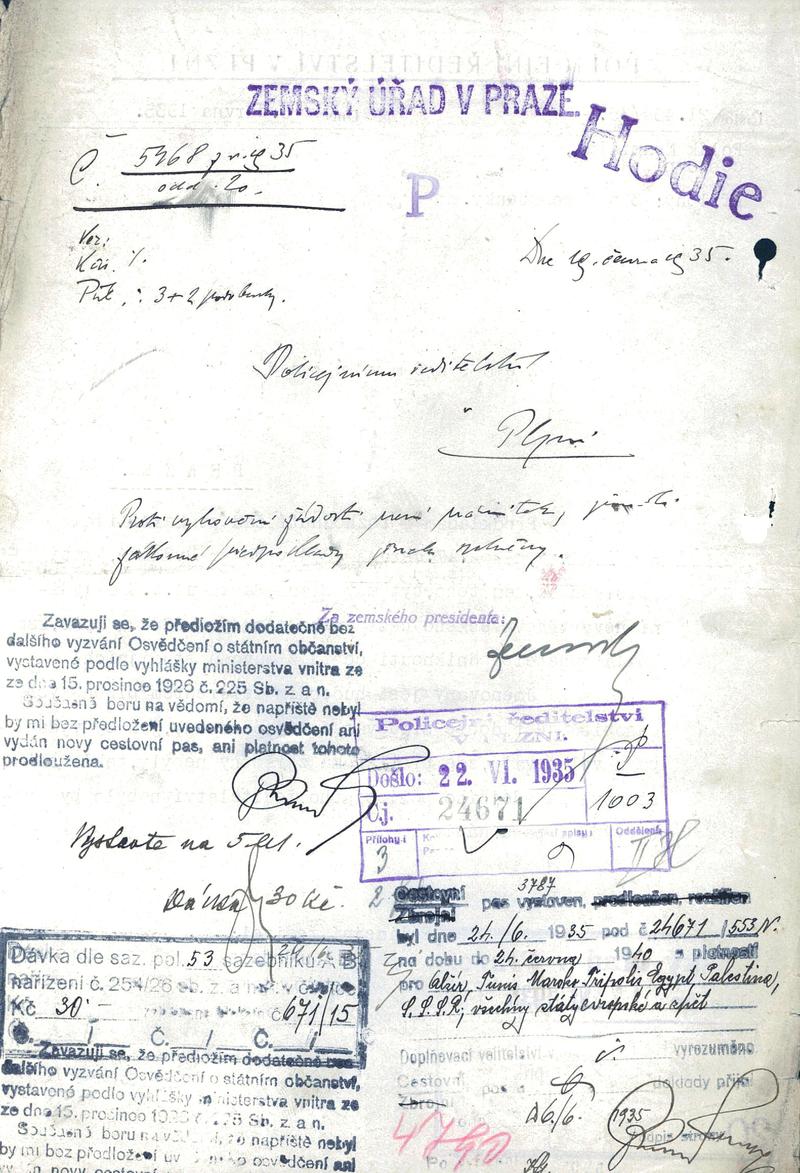 ZEMSKÝ ÚŘAD V PRAZE.
Hodie
Č. 5468 prez 35
odd. 20.
P
Dne 19. června 1935.
3+2 podobenky.
Policejnímu ředitelství
v Plzni
Proti vyhovění žádosti není námitek, jsou-li
zákonné předpoklady jinak splněny.
Za zemského presidenta:
Zavazuji se, že předložím dodatečně bez
dalšího vyzvání Osvědčení o státním občanství,
vystavené podle vyhlášky ministerstva vnitra ze
ze dne 15. prosince 1926 č. 225 Sb. z. a n.
Současně beru na vědomí, že napříště nebyl
by mi bez předložení uvedeného osvědčení ani
vydán nový cestovní pas, ani platnost tohoto
prodloužena.
Policejní ředitelství
V PLZNI.
Došlo: 22. VI. 1935
Čj. 24671
1003
Přílohy:
3
Oddělení
Vystavte na 5 let.
Dávka 30 Kč.
Dávka dle saz. pol. 53 sazebníku A B
nařízení č. 254/26 sb. z. a n.
Kč 30 č. 671/15
Č. / Č. /
3787
Cestovní pas vystaven, prodloužen, rozšířen
Zbrojní
byl dne 24./6. 1935 pod č 24671/553/N.
na dobu do 24. června 1940 s platností
pro Alžír, Tunis Maroko Tripolis Egypt, Palestina,
S.S.S.R, všechny státy evropské a zpět
Doplňovací velitelství v vyrozuměno
Cestovní pas a doklady přijal
Zbrojní
26./6. 1935
podpis strany
4790
Zavazuji se, že předložím dodatečně bez
dalšího vyzvání Osvědčení o státním občanství,
vystavené podle vyhlášky ministerstva vnitra ze
ze dne 15. prosince 1926 č. 225 Sb. z a n.
Současně beru na vědomí, že napříště nebyl
by mi bez předložení uvedeného osvědčení ani
vydán nový cestovní pas, ani platnost tohoto